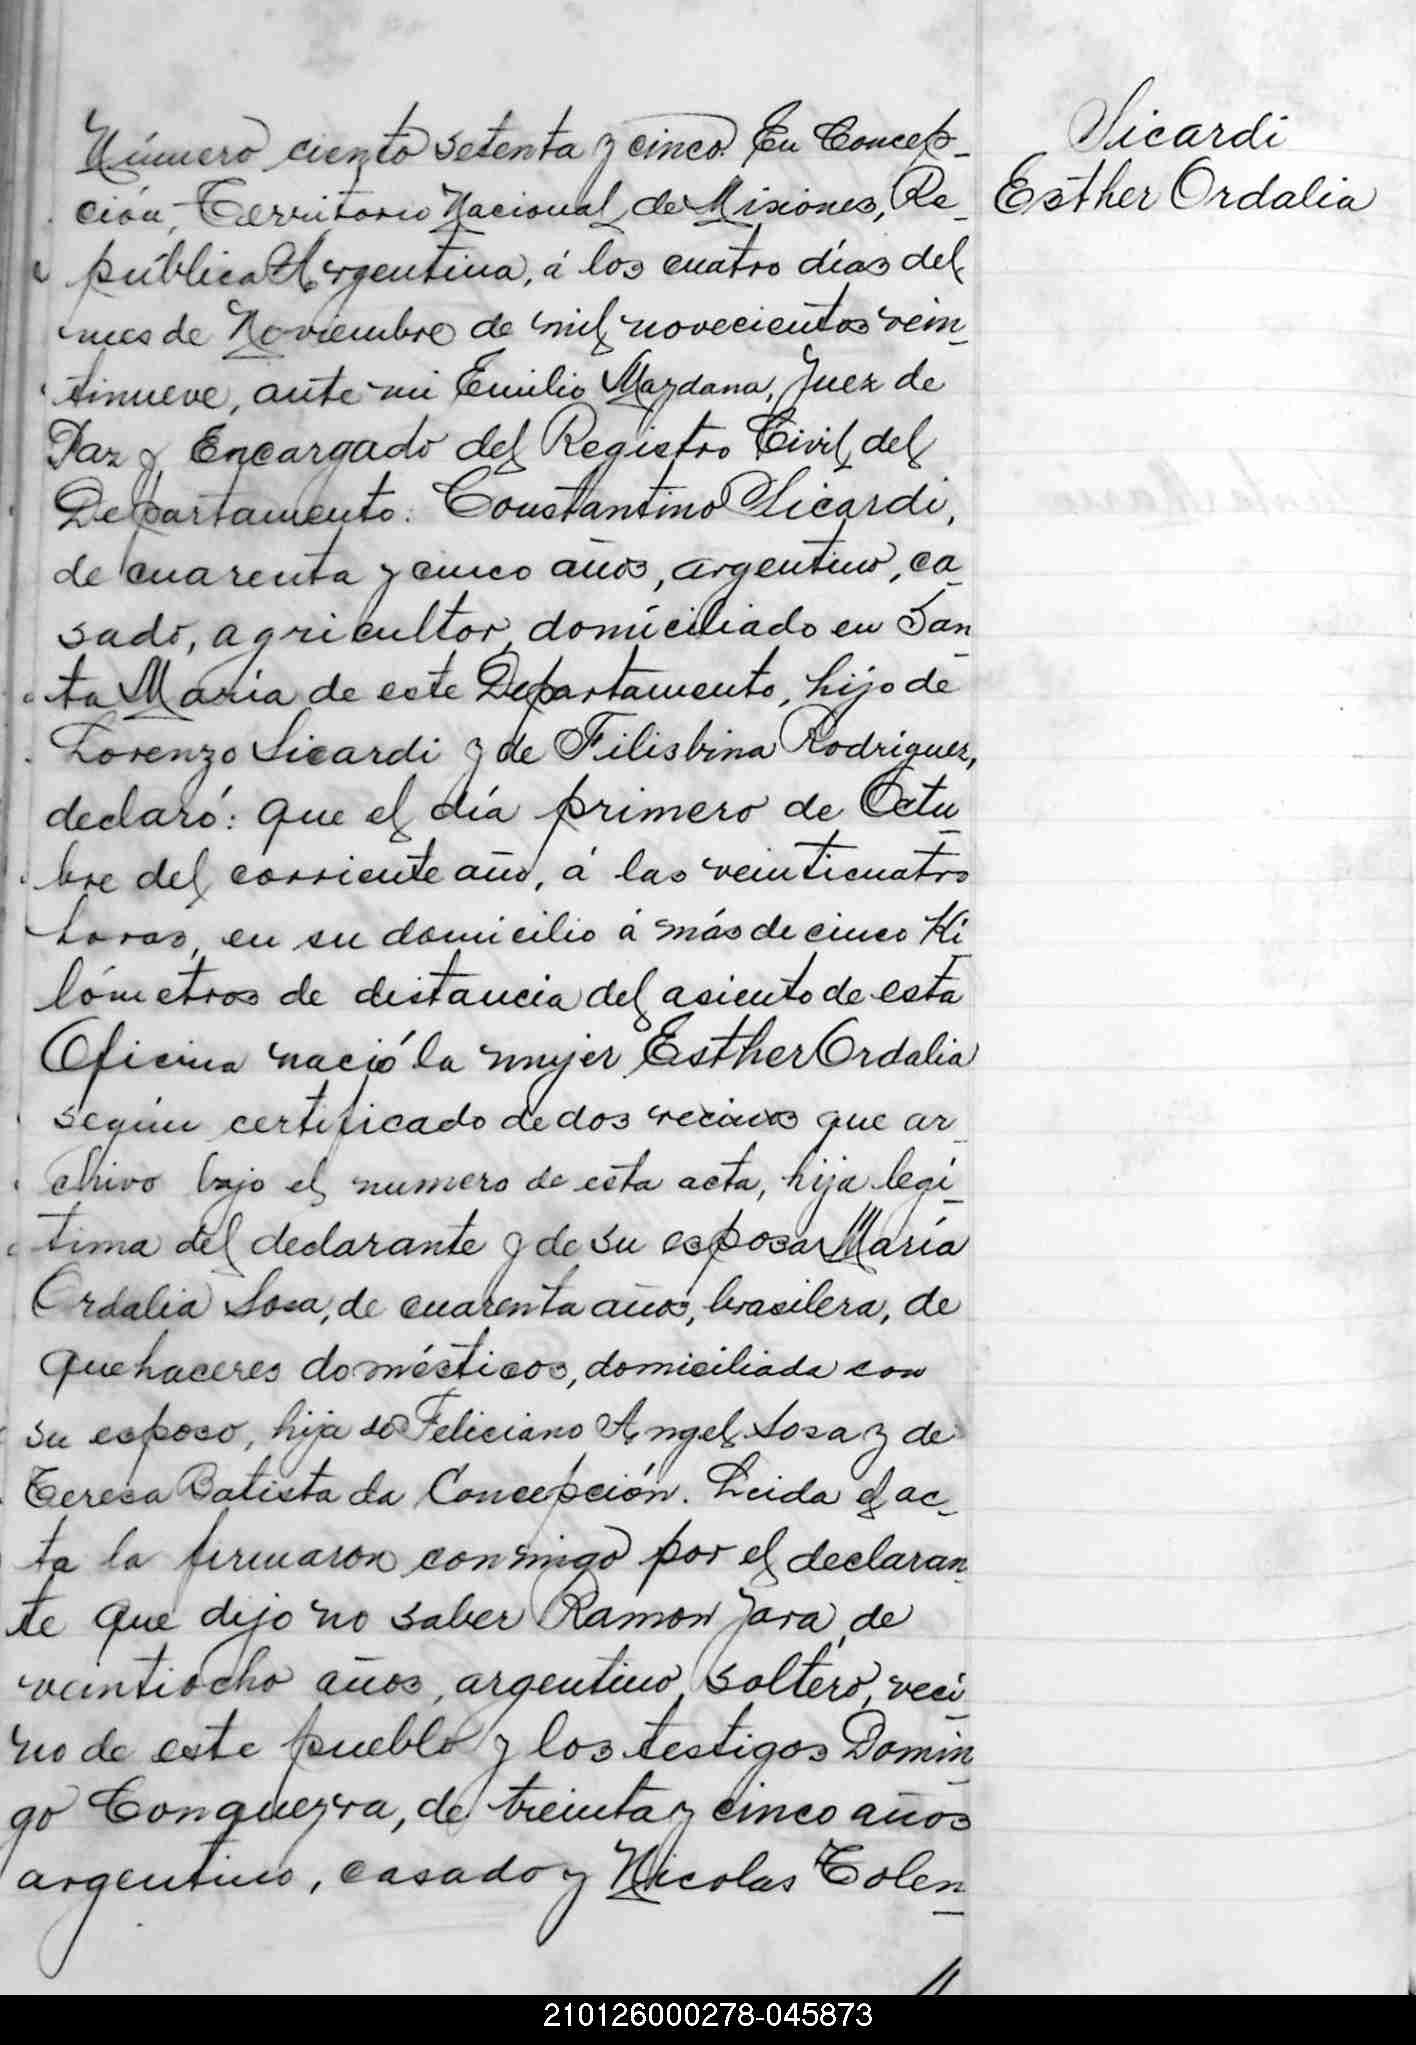 Número ciento setenta y cinco. En Concep-
ción, Territorio Nacional de Misiones, Re-
pública Argentina, á los cuatro días del
mes de Noviembre de mil novecientos vein-
tinueve, ante mi Emilio Maydana, Juez de
Paz y Encargado del Registro Civil del
Departamento: Constantino Sicardi,
de cuarenta y cinco años, argentino, ca-
sado, agricultor, domiciliado en San-
ta María de este Departamento, hijo de
Lorenzo Sicardi y de Filisbina Rodríguez,
declaró: que el día primero de Octu-
bre del corriente año, á las veinticuatro
horas, en su domicilio á más de cinco Ki-
lómetros de distancia del asiento de esta
Oficina nació la mujer Esther Ordalia
según certificado de dos vecinos que ar-
chivo bajo el numero de esta acta, hija legí-
tima del declarante y de su esposa María
Ordalia Sosa, de cuarenta años, brasilera, de
quehaceres domésticos, domiciliada con
su esposo, hija de Feliciano Angel Sosa y de
Teresa Batista da Concepción. Leida el ac-
ta la firmaron conmigo por el declaran-
te que dijo no saber Ramon Jara, de
veintiocho años, argentino, soltero, veci-
no de este pueblo y los testigos Domin-
go Conqueyra, de treinta y cinco años
argentino, casado y Nicolas Tolen-
Sicardi
Esther Ordalia
210126000278-045873